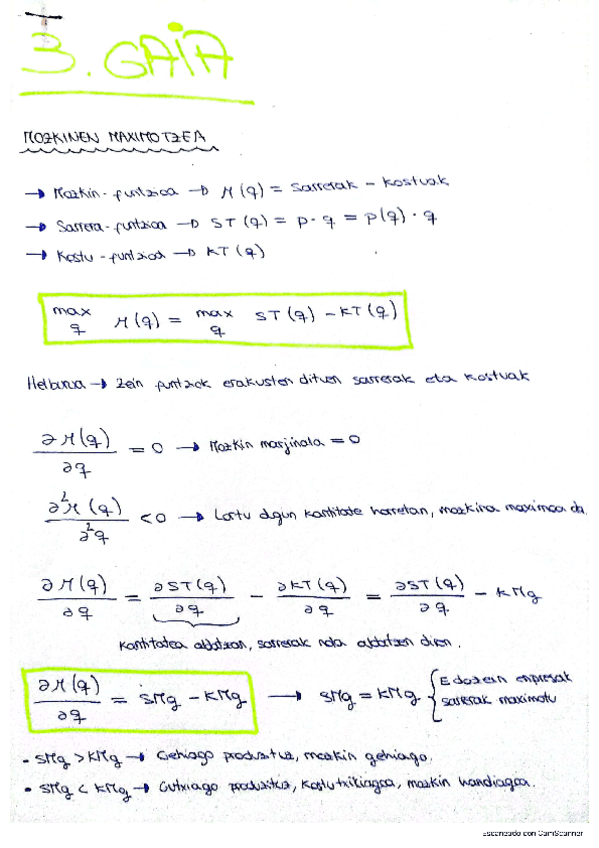 3. GAIA
MOZKINEN MAXIMOTZEA
→ Mozkin-funtzioa → M(q) = Sarrerak - kostuak
→ Sarrera-funtzioa → ST(q) = p · q = p(q) · q
→ Kostu-funtzioa → KT(q)
max q M(q) = max q ST(q) - KT(q)
Helburua → Zein puntzok erakusten dituen sarrerak eta kostuak
∂M(q)/∂q = 0 → Mozkin marjinala = 0
∂²M(q)/∂²q < 0 → Lortu dgun kantitate horretan, mozkina maximoa da.
∂M(q)/∂q = ∂ST(q)/∂q - ∂KT(q)/∂q = ∂ST(q)/∂q - KMg
kantitatea aldatzean, sarrerak nola aldatzen diren.
∂M(q)/∂q = SMg - KMg → SMg = KMg { Edozein enpresak
sarrerak maximotu
- SMg > KMg → Gehiago produzituz, mozkin gehiago.
• SMg < KMg → Gutxiago produzituz, kostu txikiagoa, mozkin handiagoa.
Escaneado con CamScanner